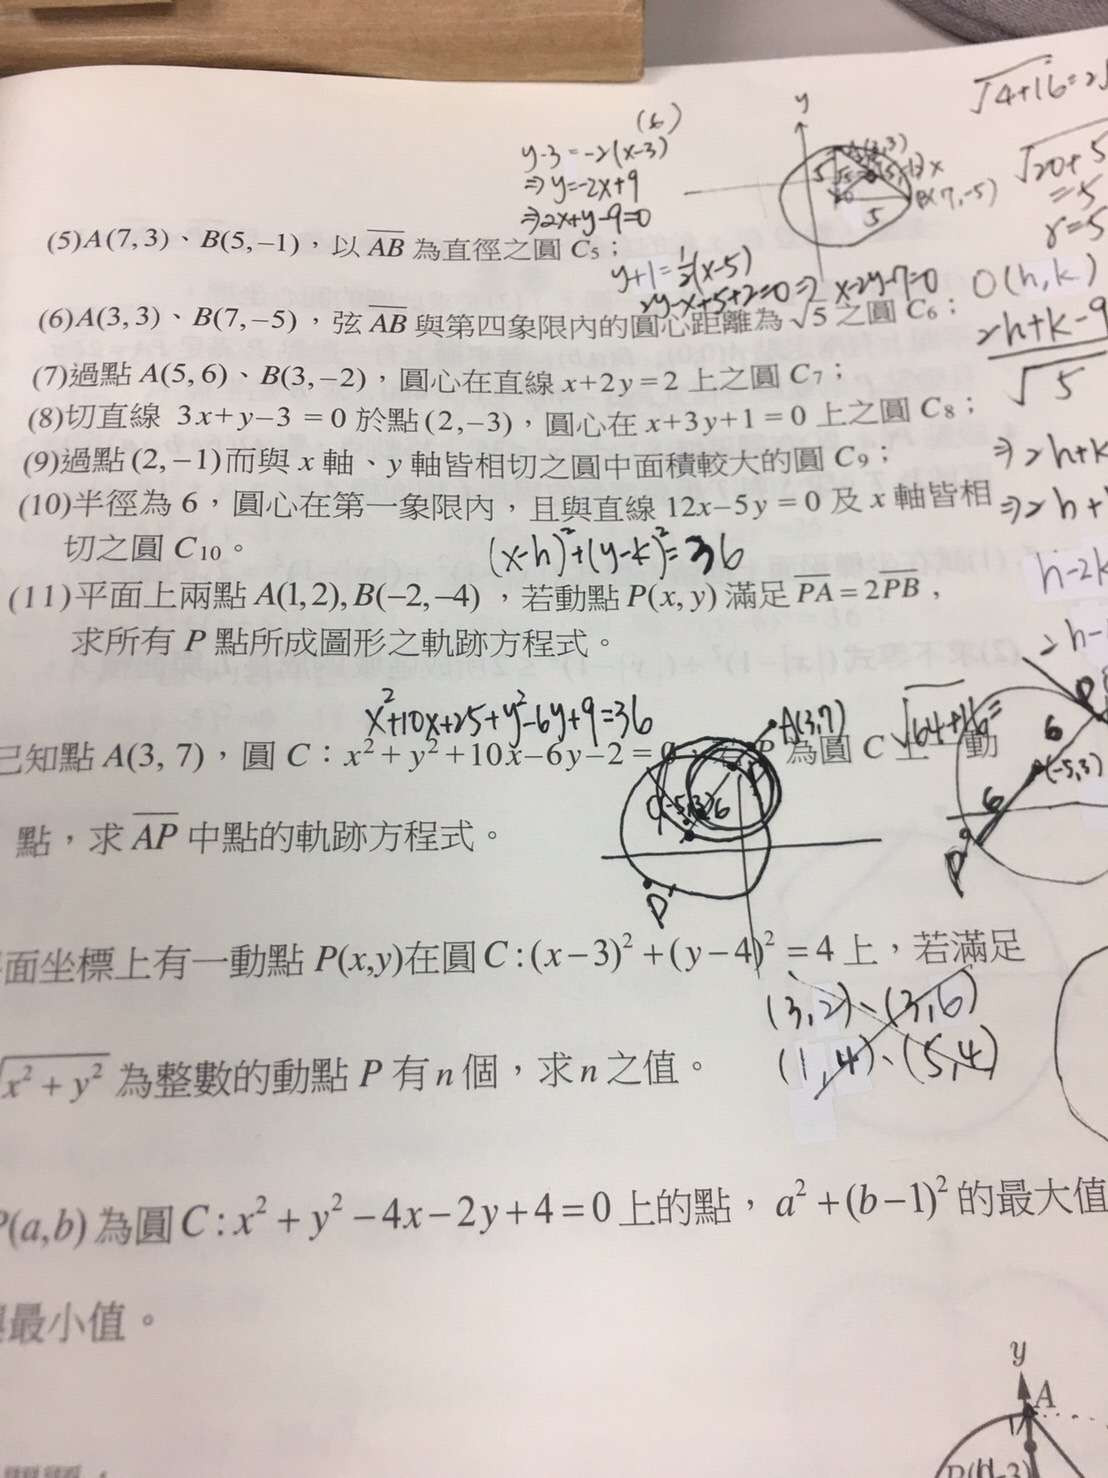 (6)
y-3=-2(x-3)
⇒y=-2x+9
⇒2x+y-9=0
y
x
5
5
B(7,-5)
√4+16=2
√20+5
=5
r=5
(5)A(7,3)、B(5,-1),以AB為直徑之圓 C₅;
y+1=½(x-5)
2y-x+5+2=0⇒ x-2y-7=0
O(h,k)
(6)A(3,3)、B(7,-5),弦AB與第四象限內的圓心距離為√5之圓 C₆;
2h+k-9
√5
(7)過點A(5,6)、B(3,-2),圓心在直線x+2y=2上之圓 C₇;
(8)切直線 3x+y-3=0於點(2,-3),圓心在x+3y+1=0上之圓 C₈;
(9)過點(2,-1)而與x軸、y軸皆相切之圓中面積較大的圓 C₉;
⇒2h+k
(10)半徑為6,圓心在第一象限內,且與直線12x-5y=0及x軸皆相
⇒2h+
切之圓 C₁₀。
(x-h)²+(y-k)²=36
h-2k
(11)平面上兩點A(1,2),B(-2,-4),若動點P(x,y)滿足PA=2PB,
求所有P點所成圖形之軌跡方程式。
2h-
x²+10x+25+y²-6y+9=36
A(3,7)
√64+16=
已知點A(3,7),圓C:x²+y²+10x-6y-2=0,P為圓C上一動
(-5,3)
6
P
6
(-5,3)
6
P
點,求AP中點的軌跡方程式。
P
面坐標上有一動點P(x,y)在圓C:(x-3)²+(y-4)²=4上,若滿足
(3,2)、(3,6)
(1,4)、(5,4)
√x²+y²為整數的動點P有n個,求n之值。
P(a,b)為圓C:x²+y²-4x-2y+4=0上的點,a²+(b-1)²的最大值
最小值。
y
A